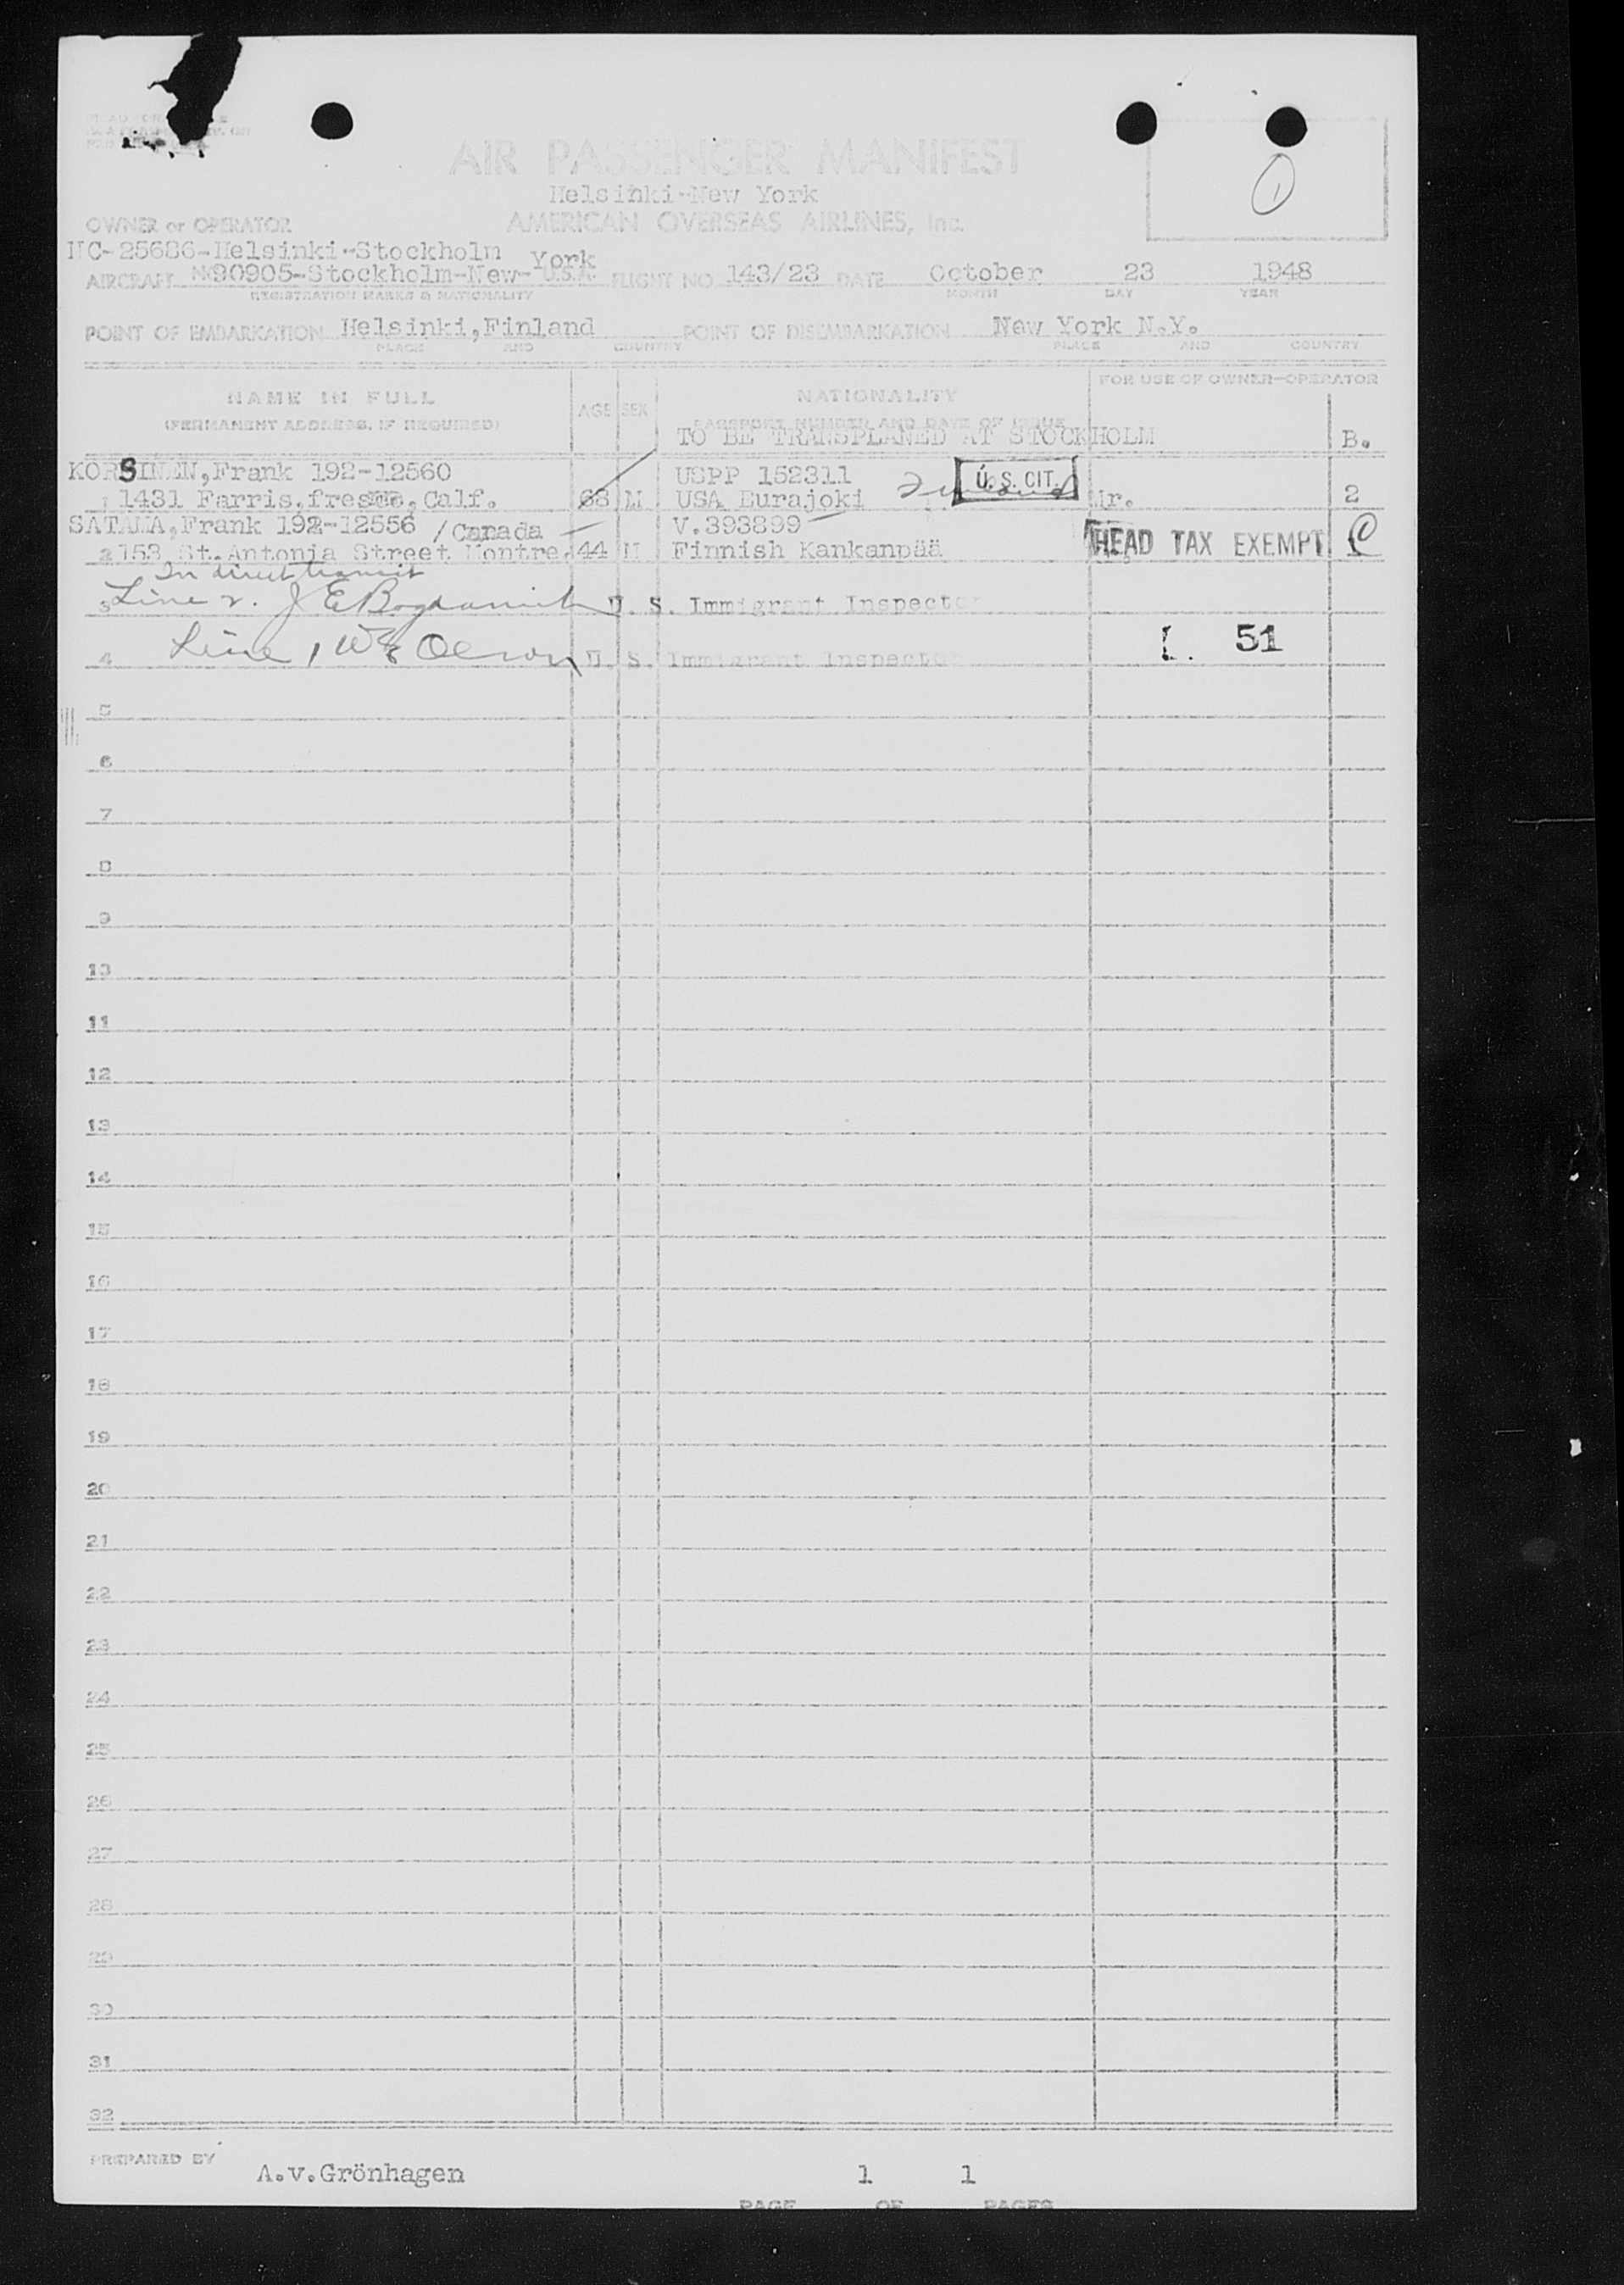 AIR PASSENGER MANIFEST
Helsinki-New York
OWNER or OPERATOR AMERICAN OVERSEAS AIRLINES, Inc.
NC-25686-Helsinki-Stockholm York
AIRCRAFT NC90905-Stockholm-New- U.S.A. FLIGHT NO. 143/23 DATE October 23 1948
REGISTRATION MARKS & NATIONALITY MONTH DAY YEAR
POINT OF EMBARKATION Helsinki,Finland POINT OF DISEMBARKATION New York N.Y.
PLACE AND COUNTRY PLACE AND COUNTRY
NAME IN FULL AGE SEX NATIONALITY FOR USE OF OWNER-OPERATOR
(PERMANENT ADDRESS, IF REQUIRED) PASSPORT NUMBER AND DATE OF ISSUE
TO BE TRANSPLANED AT STOCKHOLM B.
KORSINEN,Frank 192-12560 USPP 152311 U.S. CIT.
1 1431 Farris,fresno,Calf. 68 M USA Eurajoki Finland Mr. 2
SATAMA,Frank 192-12556 /Canada V.393899
2 153 St.Antonia Street Montre 44 M Finnish Kankanpää HEAD TAX EXEMPT
In direct transit
3 Line 2. J E U. S. Immigrant Inspector
4 Line 1 W E Olson U. S. Immigrant Inspector 51
5
6
7
8
9
10
11
12
13
14
15
16
17
18
19
20
21
22
23
24
25
26
27
28
29
30
31
32
PREPARED BY A.v.Grönhagen 1 1
PAGE OF PAGES